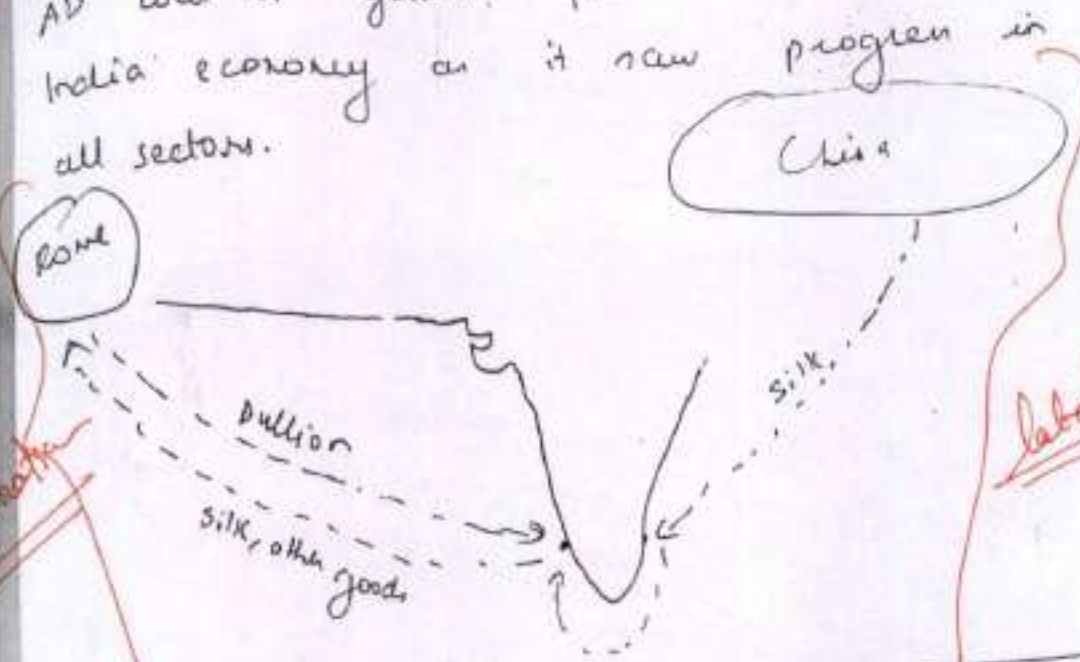 AD
India economy as it saw progress in
all sectors.
China
Rome
silk,
Bullion
Silk, other goods